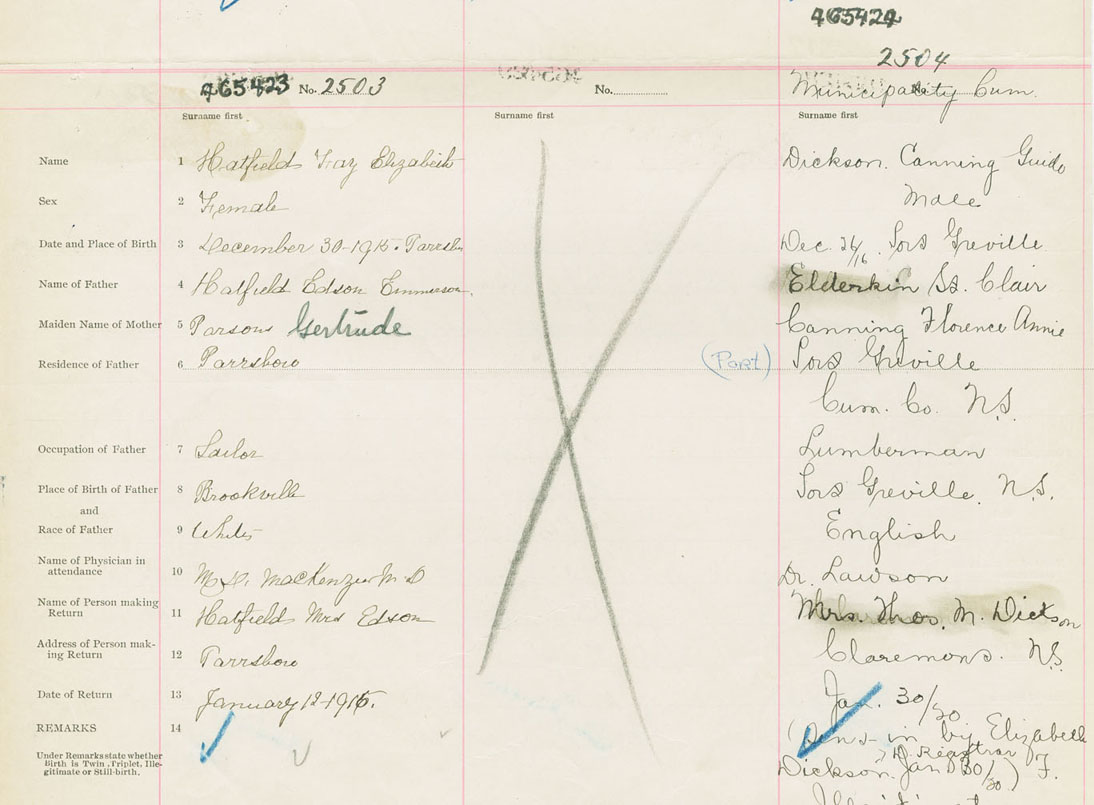 465424
2504
465423 No. 2503
No.
Municipality Cum.
Surname first
Surname first
Surname first
Name 1 Hatfield Fay Elizabeth
Dickson. Canning Guido
Sex 2 Female
Male
Date and Place of Birth 3 December 30-1915. Parrsbo
Dec. 26/16. Port Greville.
Name of Father 4 Hatfield Edson Emmerson.
Elderkin St. Clair
Maiden Name of Mother 5 Parsons Gertrude
Canning Florence Annie
Residence of Father 6 Parrsboro
(Port) Port Greville
Cum. Co. N.S.
Occupation of Father 7 Sailor
Lumberman
Place of Birth of Father 8 Brookville
Port Greville. N.S.
and
Race of Father 9 White
English
Name of Physician in
attendance 10 MacKenzie M D
Dr. Lawson
Name of Person making
Return 11 Hatfield Mrs Edson
Mrs. Thos. M. Dickson
Address of Person mak-
ing Return 12 Parrsboro
Claremont. N.S.
Date of Return 13 January 12-1916.
Jan. 30/30
REMARKS 14
(Sent in by Elizabeth
Under Remarks state whether
Birth is Twin, Triplet, Ille-
gitimate or Still-birth.
F. Dickson. D. Registrar Jan 30/30)